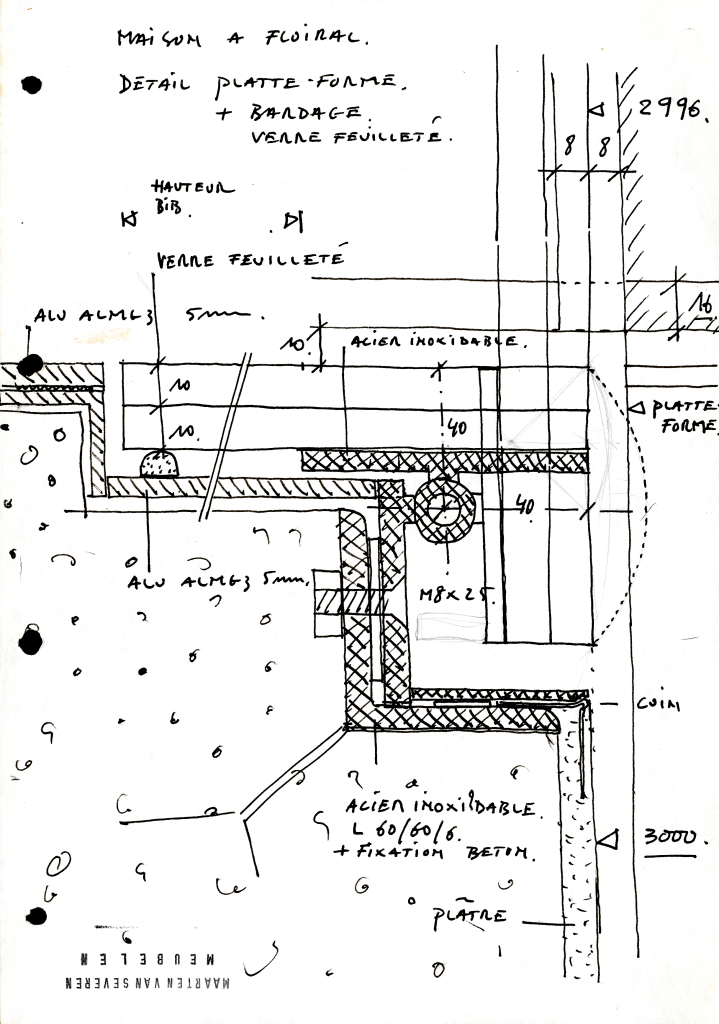 MAISON A FLOIRAL.
DETAIL PLATTE-FORME.
+ BARDAGE.
VERRE FEUILLETÉ.
2996.
8 8
HAUTEUR
BIB.
VERRE FEUILLETÉ
ALU ALMG3 5mm.
16
10.
ACIER INOXIDABLE.
10
PLATTE-
FORME.
10.
40
40
ALU ALMG3 5mm.
M8 x 25.
COIN
ACIER INOXIDABLE.
L 60/60/6.
+ FIXATION BETON.
3000.
PLÂTRE
MAARTEN VAN SEVEREN
MEUBELEN